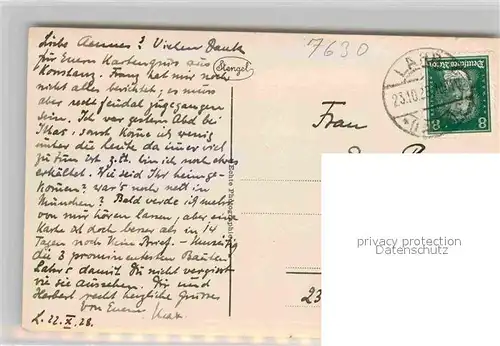 Liebe Aenne! Vielen Dank
für Euern Kartengruß aus
Konstanz. Franz hat mir noch
nicht alles berichtet; es muss
aber recht feudal zugegangen
sein. Ich war gestern Abd bei
komme ich wenig
unter die heute da immer viel
zu tun ist z.Zt. bin ich noch etwas
erkältet. Wie seid Ihr heimge-
kommen? war's noch nett in
München? Bald werde ich mehr
von mir hören lassen, aber eine
Karte ist doch besser als in 14
Tagen noch kein Brief.
die 3 prominentesten Bauten
Lahrs damit Du nicht vergisst
wie sie aussehen. Dir und
Herbert recht herzliche Grüsse
von Euerm
L. 22. X. 28.
Stengel
7630
Echte Photographie
Frau
LAHR
23.10.2
Deutsches Reich
8 8
23
privacy protection
Datenschutz